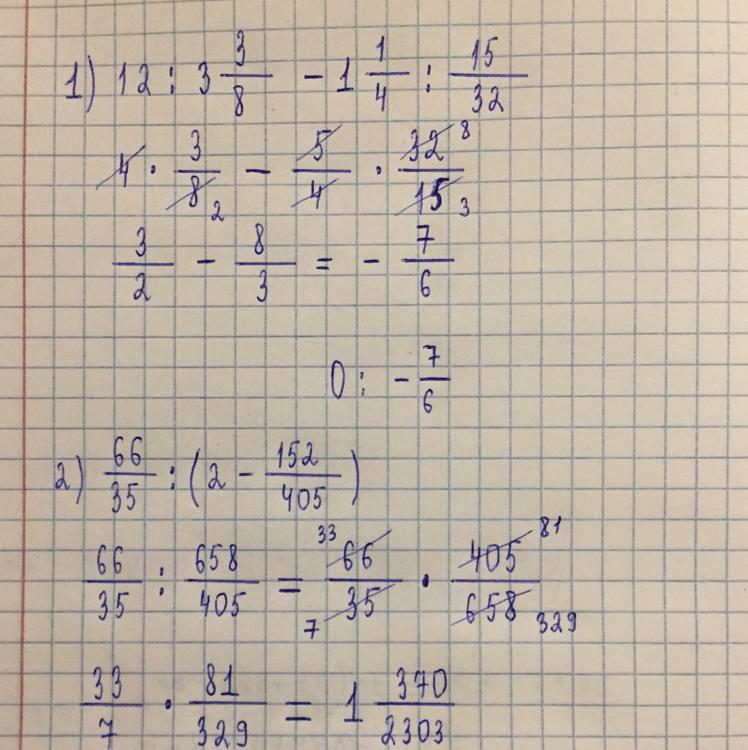 1) 12 : 3 3/8 - 1 1/4 : 15/32
4 · 3/8 2 - 5/4 · 32 8/15 3
3/2 - 8/3 = - 7/6
0: - 7/6
2) 66/35 : (2 - 152/405)
66/35 : 658/405 = 33 66/7 35 · 405 81/658 329
33/7 · 81/329 = 1 370/2303